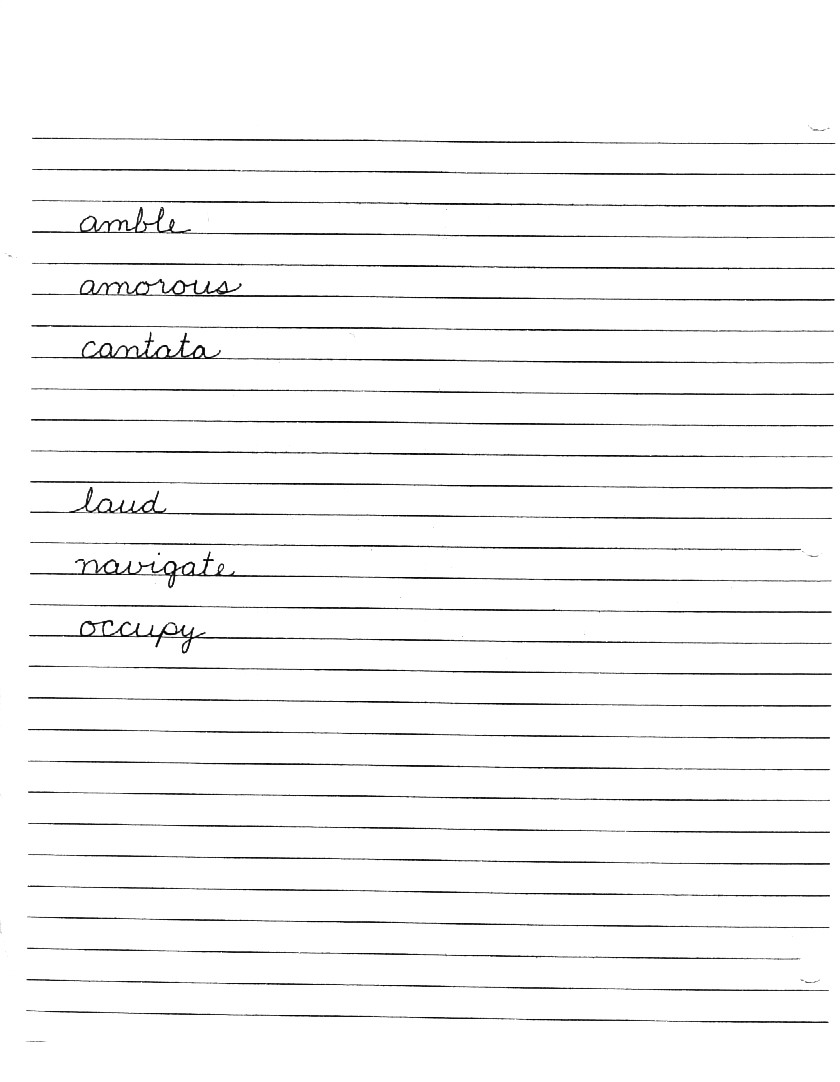 amble
amorous
cantata
laud
navigate
occupy